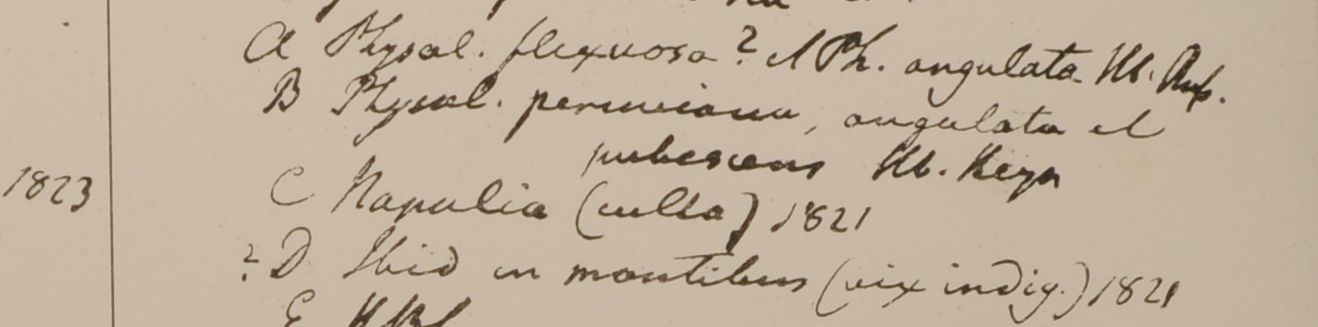 A Physal. flexuosa? et Ph. angulata Hb. Ruß.
B Physal. peruviana, angulata et
pubescens Hb. Heyn
1823
C Napalia (culta) 1821
? D Ibid in montibus (vix indig.) 1821
E HBC